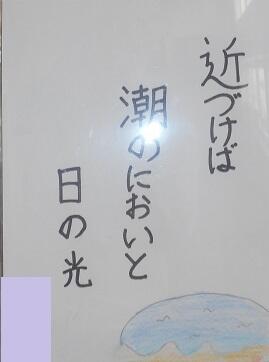 近づけば
潮のにおいと
日の光